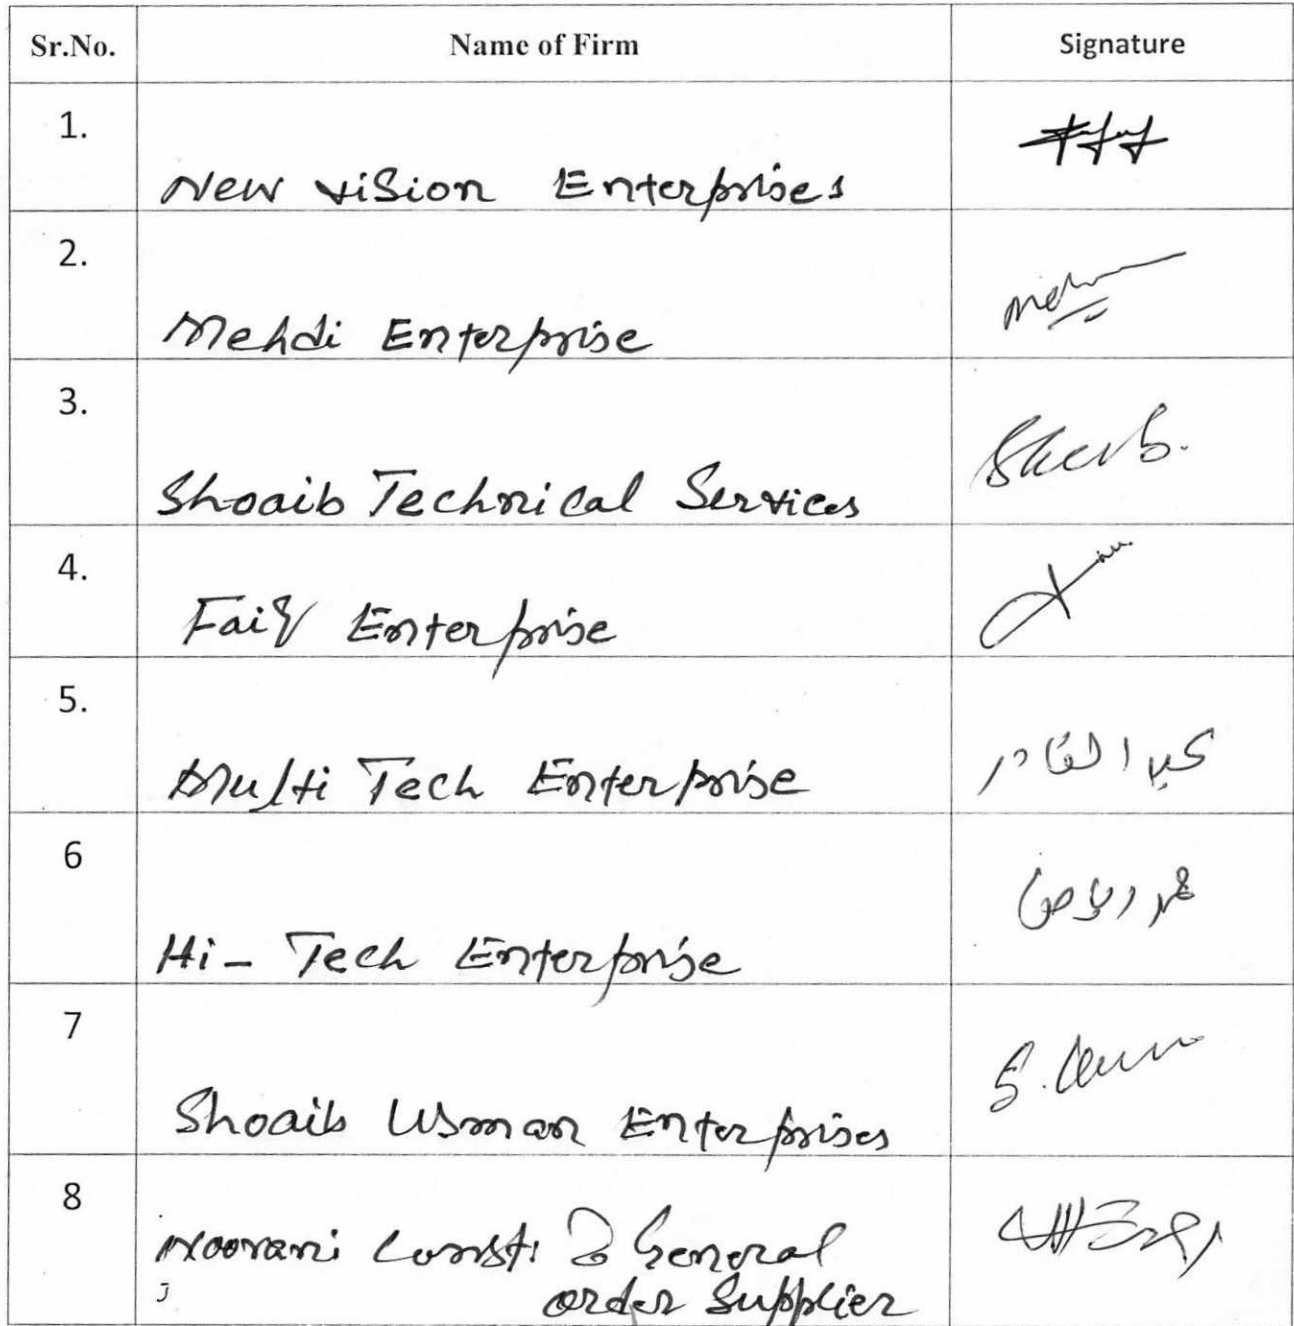 Sr.No. Name of Firm Signature
1.
New Vision Enterprises
2.
Mehdi Enterprise
3.
Shoaib Technical Services
4.
Faiz Enterprise
5.
Multi Tech Enterprise عبد القادر
6
Hi- Tech Enterprise
7
Shoaib Usman Enterprises
8
Noorani Const: & General
order Supplier